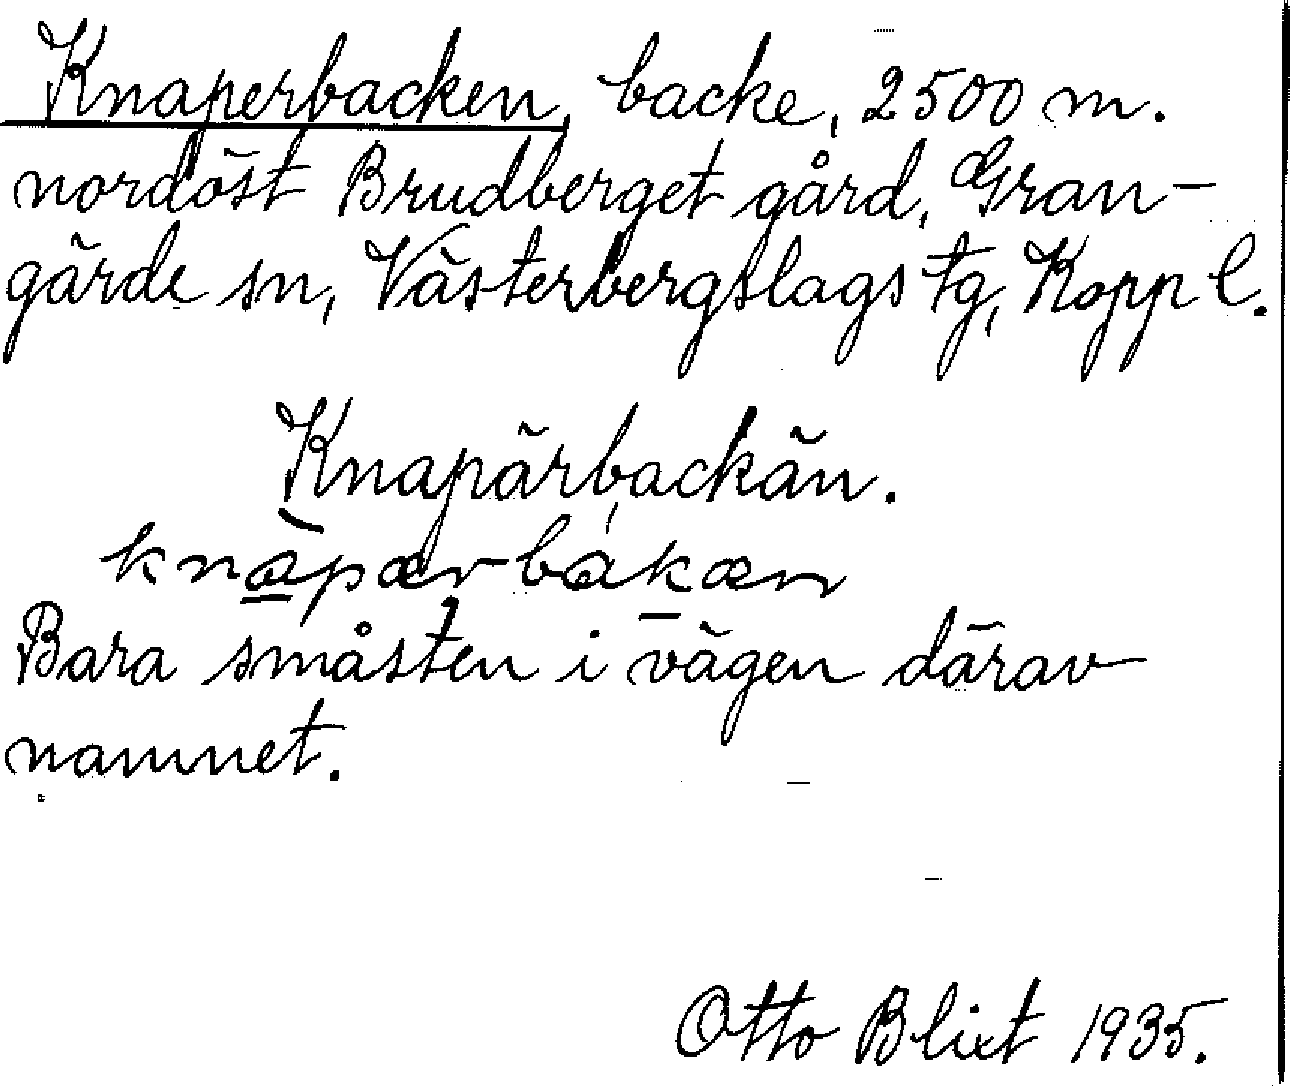 Knaperbacken, backe, 2500 m.
nordöst Brudberget gård, Gran-
gärde sn, Västerbergslags tg, Kopp l.
Knapärbackän.
knapær bakæn
Bara småsten i vägen därav
namnet.
Otto Blixt 1935.